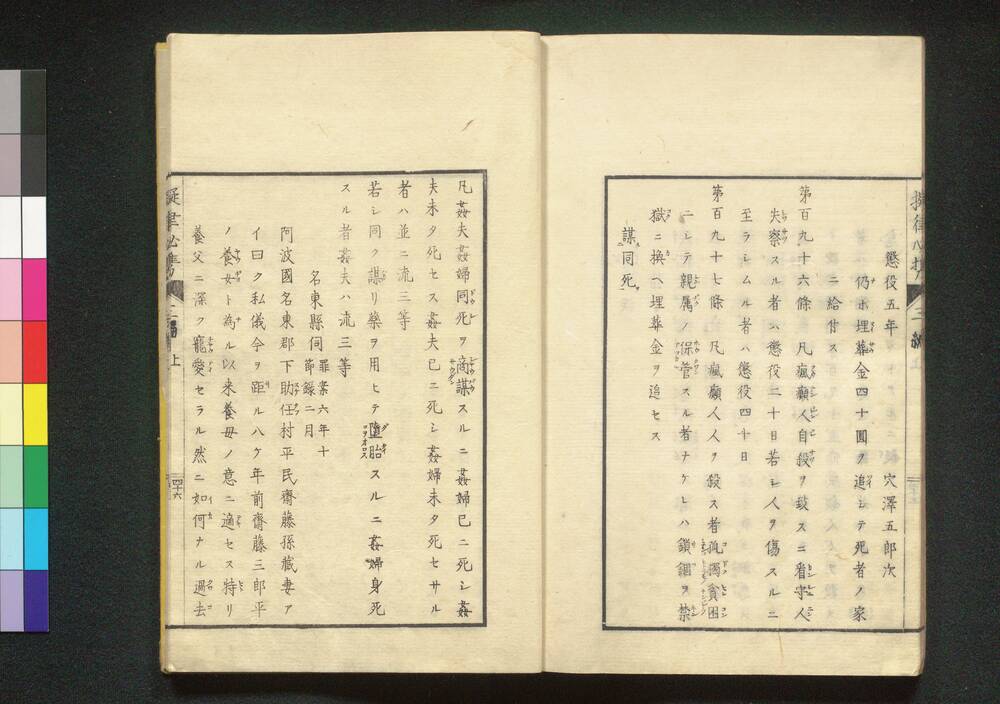 懲役五年　穴澤五郎次
仍ホ埋葬金四十圓ヲ追シテ死者ノ家
ニ給付ス
第百九十六條　凡瘋癲人自殺ヲ致スニ看守人
失察スル者ハ懲役二十日若シ人ヲ傷スルニ
至ラシムル者ハ懲役四十日
第百九十七條　凡瘋癲人人ヲ殺ス者孤獨貧困
ニシテ親属ノ保管スル者ナケレハ鎖錮ヲ禁
獄ニ換ヘ埋葬金ヲ追セス
謀同死
凡姦夫姦婦同死ヲ商謀スルニ姦婦已ニ死シ姦
夫未タ死セス姦夫已ニ死シ姦婦未タ死セサル
者ハ並ニ流三等
若シ同ク謀リ藥ヲ用ヒテ墮胎スルニ姦婦身死
スル者姦夫ハ流三等
名東縣伺　罪案六年十
節錄二月
阿波國名東郡下助任村平民齋藤孫藏妻ア
イ曰ク私儀今ヲ距ル八ケ年前齋藤三郎平
ノ養女ト為ル以来養母ノ意ニ適セス特リ
養父ニ深ク寵愛セラル然ニ如何ナル過去
上
四十六